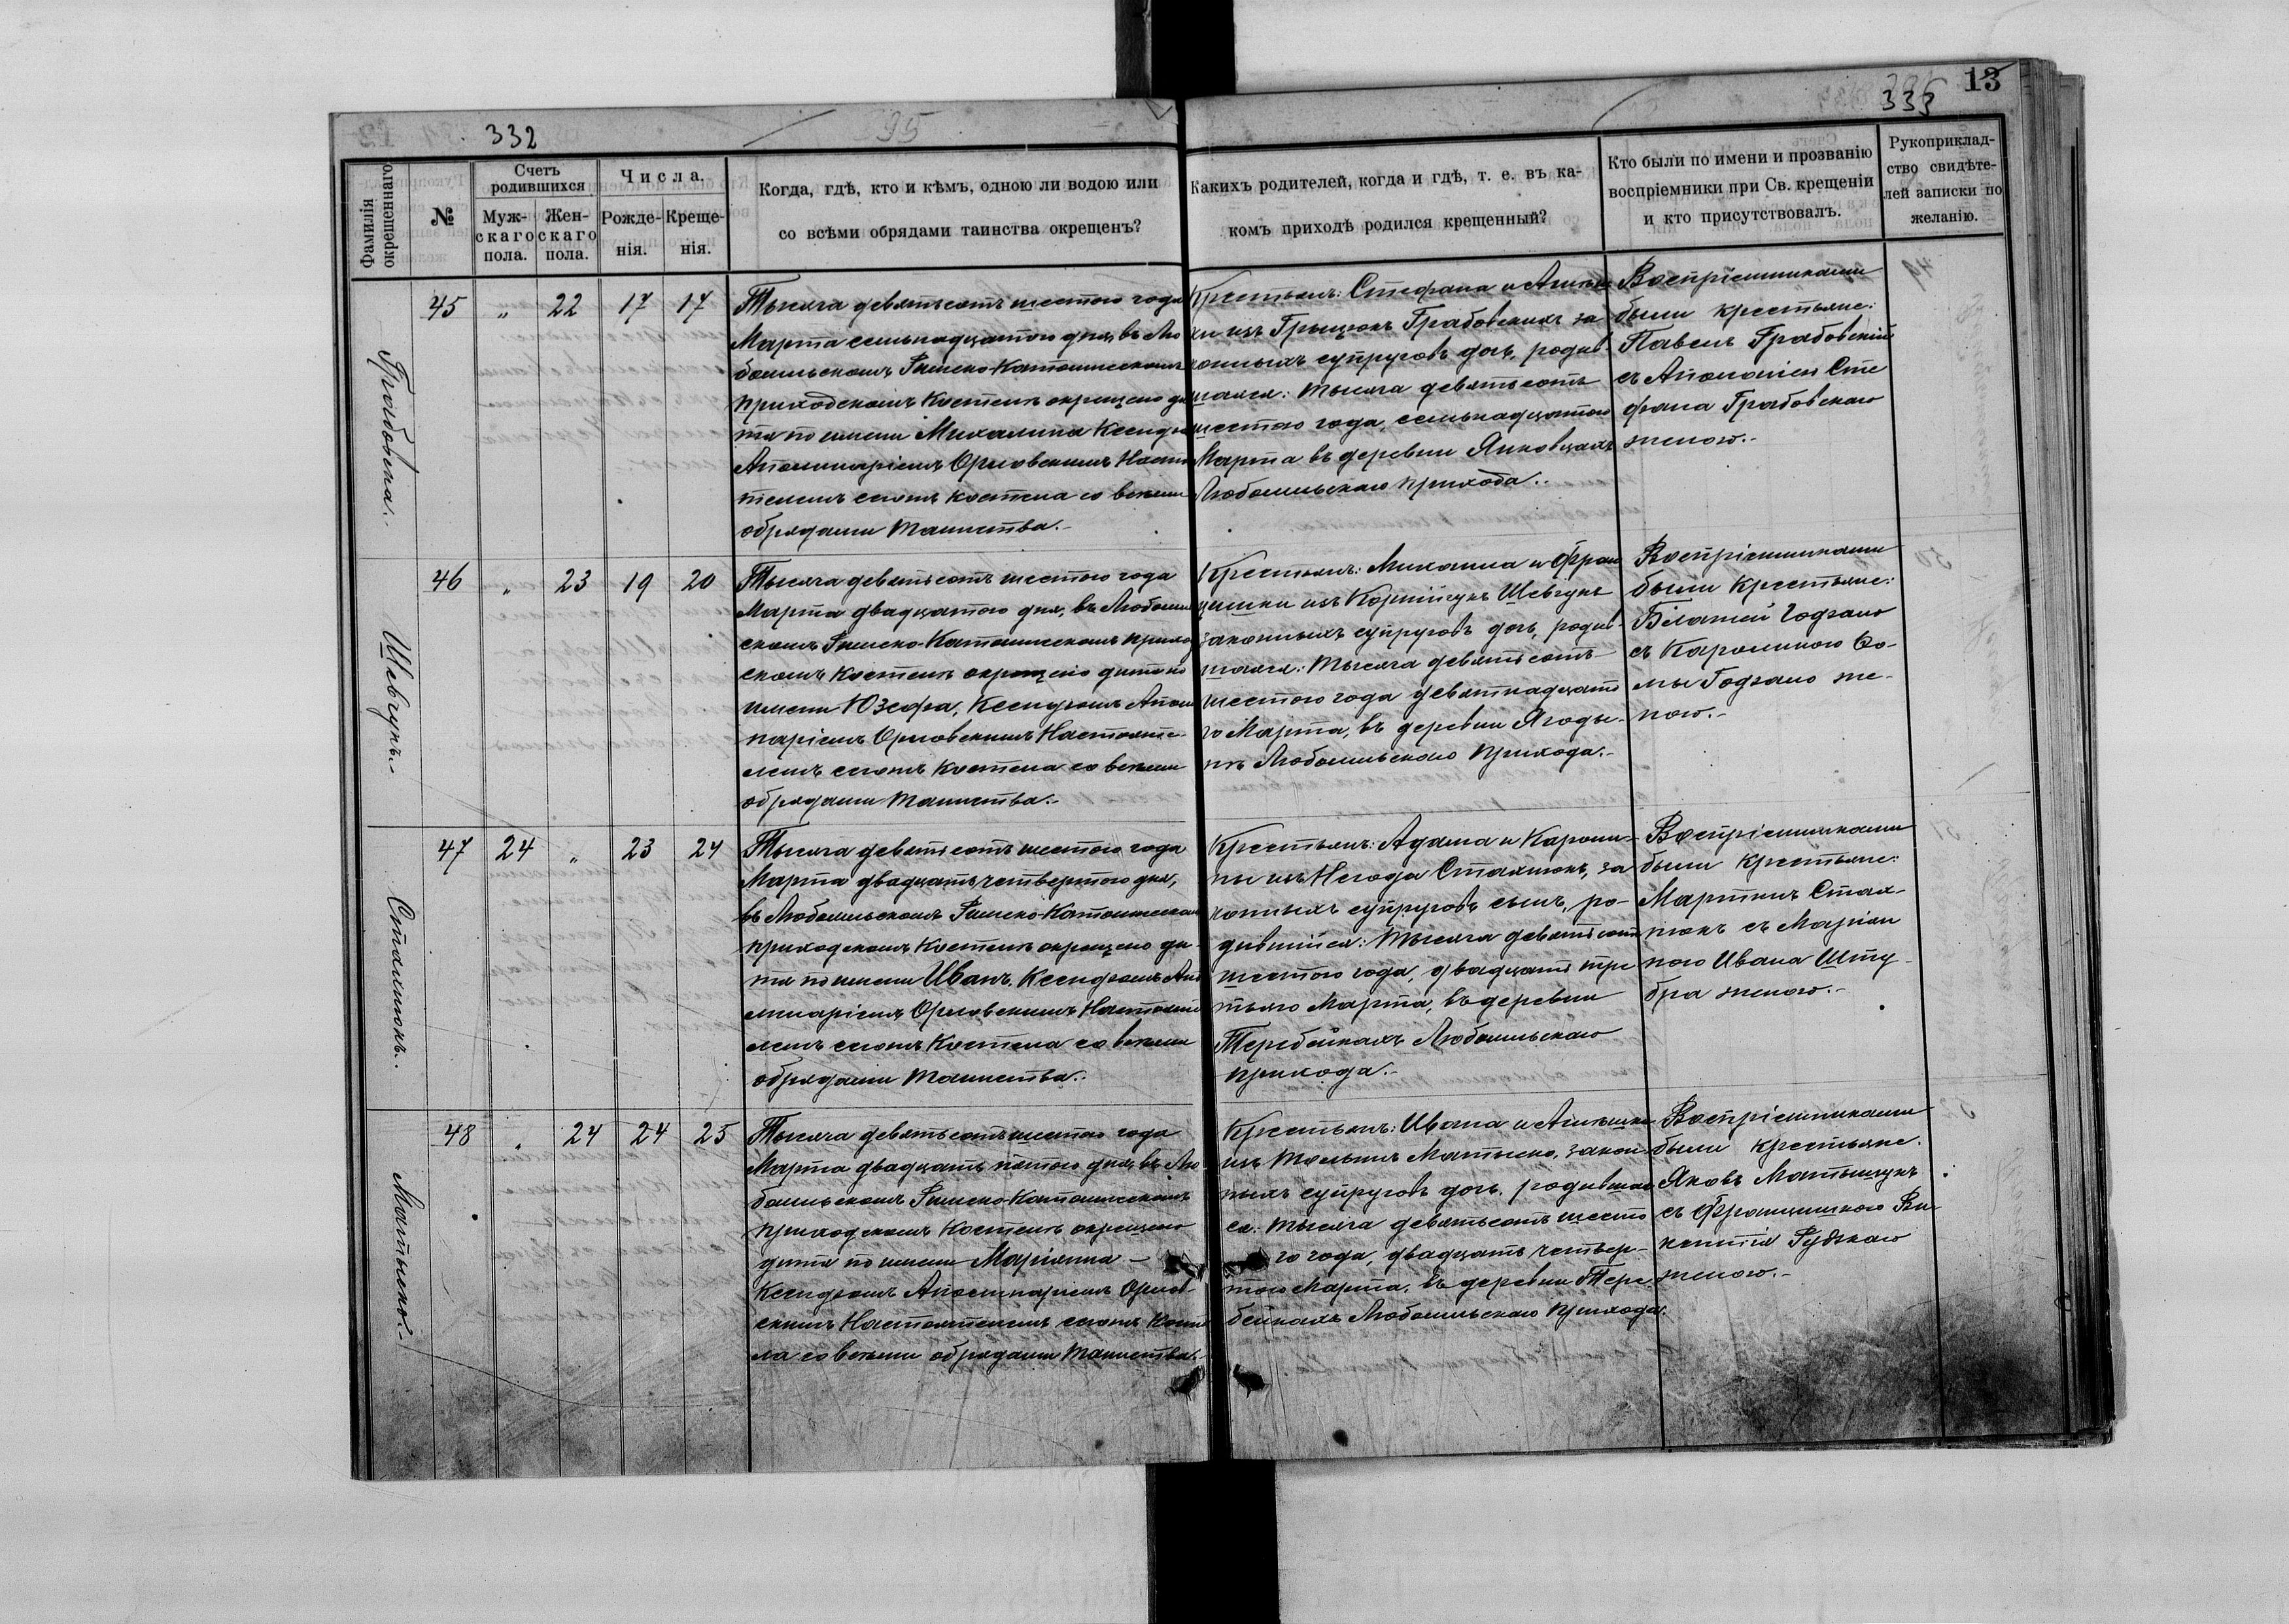 332
95
333
13
Фамилія окрещеннаго
№
Счетъ родившихся
Муж-скаго пола.
Жен-скаго пола.
Числа.
Рожде-нія.
Креще-нія.
Когда, гдѣ, кто и кѣмъ, одною ли водою или
со всѣми обрядами таинства окрещенъ?
Какихъ родителей, когда и гдѣ, т. е. въ ка-
комъ приходѣ родился крещенный?
Кто были по имени и прозванію
воспріемники при Св. крещеніи
и кто присутствовалъ.
Рукоприклад-
ство свидѣте-
лей записки по
желанію.
Грабовска.
45 „ 22 17 17
Тысяча девятьсотъ шестого года
Марта семьнадцатого дня, въ Лю
бомльскомъ Римско-Католическомъ
приходскомъ Костелѣ окрещено ди
тя по имени Михалина Ксендзомъ
Аполинаріемъ Орловскимъ Настоя
телемъ сего Костела со всѣми
обрядами Таинства.-
Крестьянъ: Стефана и
ки изъ Грыцюкъ Грабовскихъ за
конныхъ супруговъ дочь, родив-
шаяся: тысяча девятьсотъ
шестого года, семьнадцатого
Марта въ деревни Янковцахъ
Любомльскаго прихода..
Воспріемниками
были крестьяне:
Павелъ Грабовскій
съ Аполоніею Сте
фана Грабовскаго
женою.-
Шевчукъ.-
46 „ 23 19 20
Тысяча девятьсотъ шестого года
Марта двадцатого дня, въ Любомль
скомъ Римско-Католическомъ приход
скомъ Костелѣ окрещено дитя по
имени Юзефа, Ксендзомъ Аполи
наріемъ Орловскимъ Настояте-
лемъ сего Костела со всѣми
обрядами таинства.-
Крестьянъ: Михаила и Фран
цишки изъ Шевчукъ
законныхъ супруговъ дочь, родив-
шаяся: тысяча девятьсотъ
шестого года девятнадцато
го Марта, въ деревни Ягоды-
нѣ Любомльскаго прихода.-
Воспріемниками
были крестьяне:
съ Каролиною Ѳо-
мы же-
ною.-
Стахнюкъ.
47 24 „ 23 24
Тысяча девятьсотъ шестого года
Марта двадцать четвертого дня,
въ Любомльскомъ Римско-Католическомъ
приходскомъ Костелѣ окрещено ди-
тя по имени Иванъ, Ксендзомъ Апо
линаріемъ Орловскимъ Настояте
лемъ сего Костела со всѣми
обрядами таинства.
Крестьянъ: Адама и Кароли-
ны изъ Стахнюкъ, за
конныхъ супруговъ сынъ, ро-
дившійся: тысяча девятьсотъ
шестого года, двадцать тре
тьяго Марта, въ деревни
Теребейкахъ Любомльскаго
прихода.-
Воспріемниками
были крестьяне:
Мартинъ Стах-
нюкъ съ Маріан
ною Ивана Шту-
бра женою.-
Матысько.-
48 „ 24 24 25
Тысяча девятьсотъ шестого года
Марта двадцать пятого дня, въ Лю
бомльскомъ Римско-Католическомъ
приходскомъ Костелѣ окрещено
дитя по имени Маріанна -
Ксендзомъ Аполинаріемъ Орлов-
скимъ Настоятелемъ сего Косте
ла со всѣми обрядами таинства.-
Крестьянъ: Ивана и
изъ Матысько, закон-
ныхъ супруговъ дочь, родившая
ся: тысяча девятьсотъ шесто
го года, двадцать четвер-
того Марта, въ деревни Тере
бейкахъ Любомльскаго прихода.
Воспріемниками
были крестьяне:
Яковъ
съ Францишкою Ви
кентія Рудзкаго
женою.-